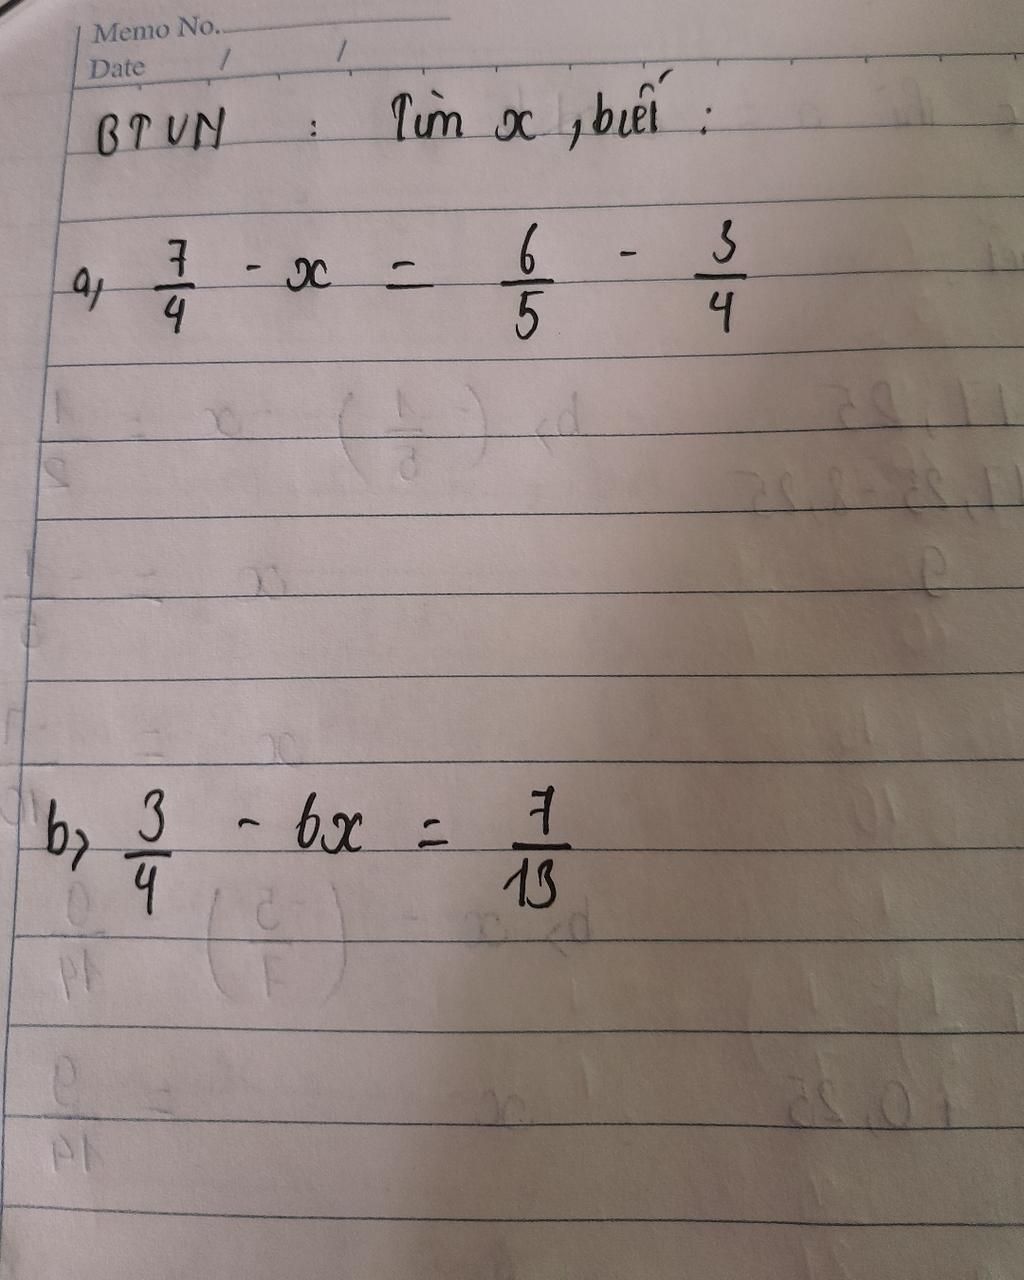 Memo No.
Date / /
BTVN : Tìm x, biết :
a, 7/4 - x = 6/5 - 3/4
b, 3/4 - 6x = 7/13